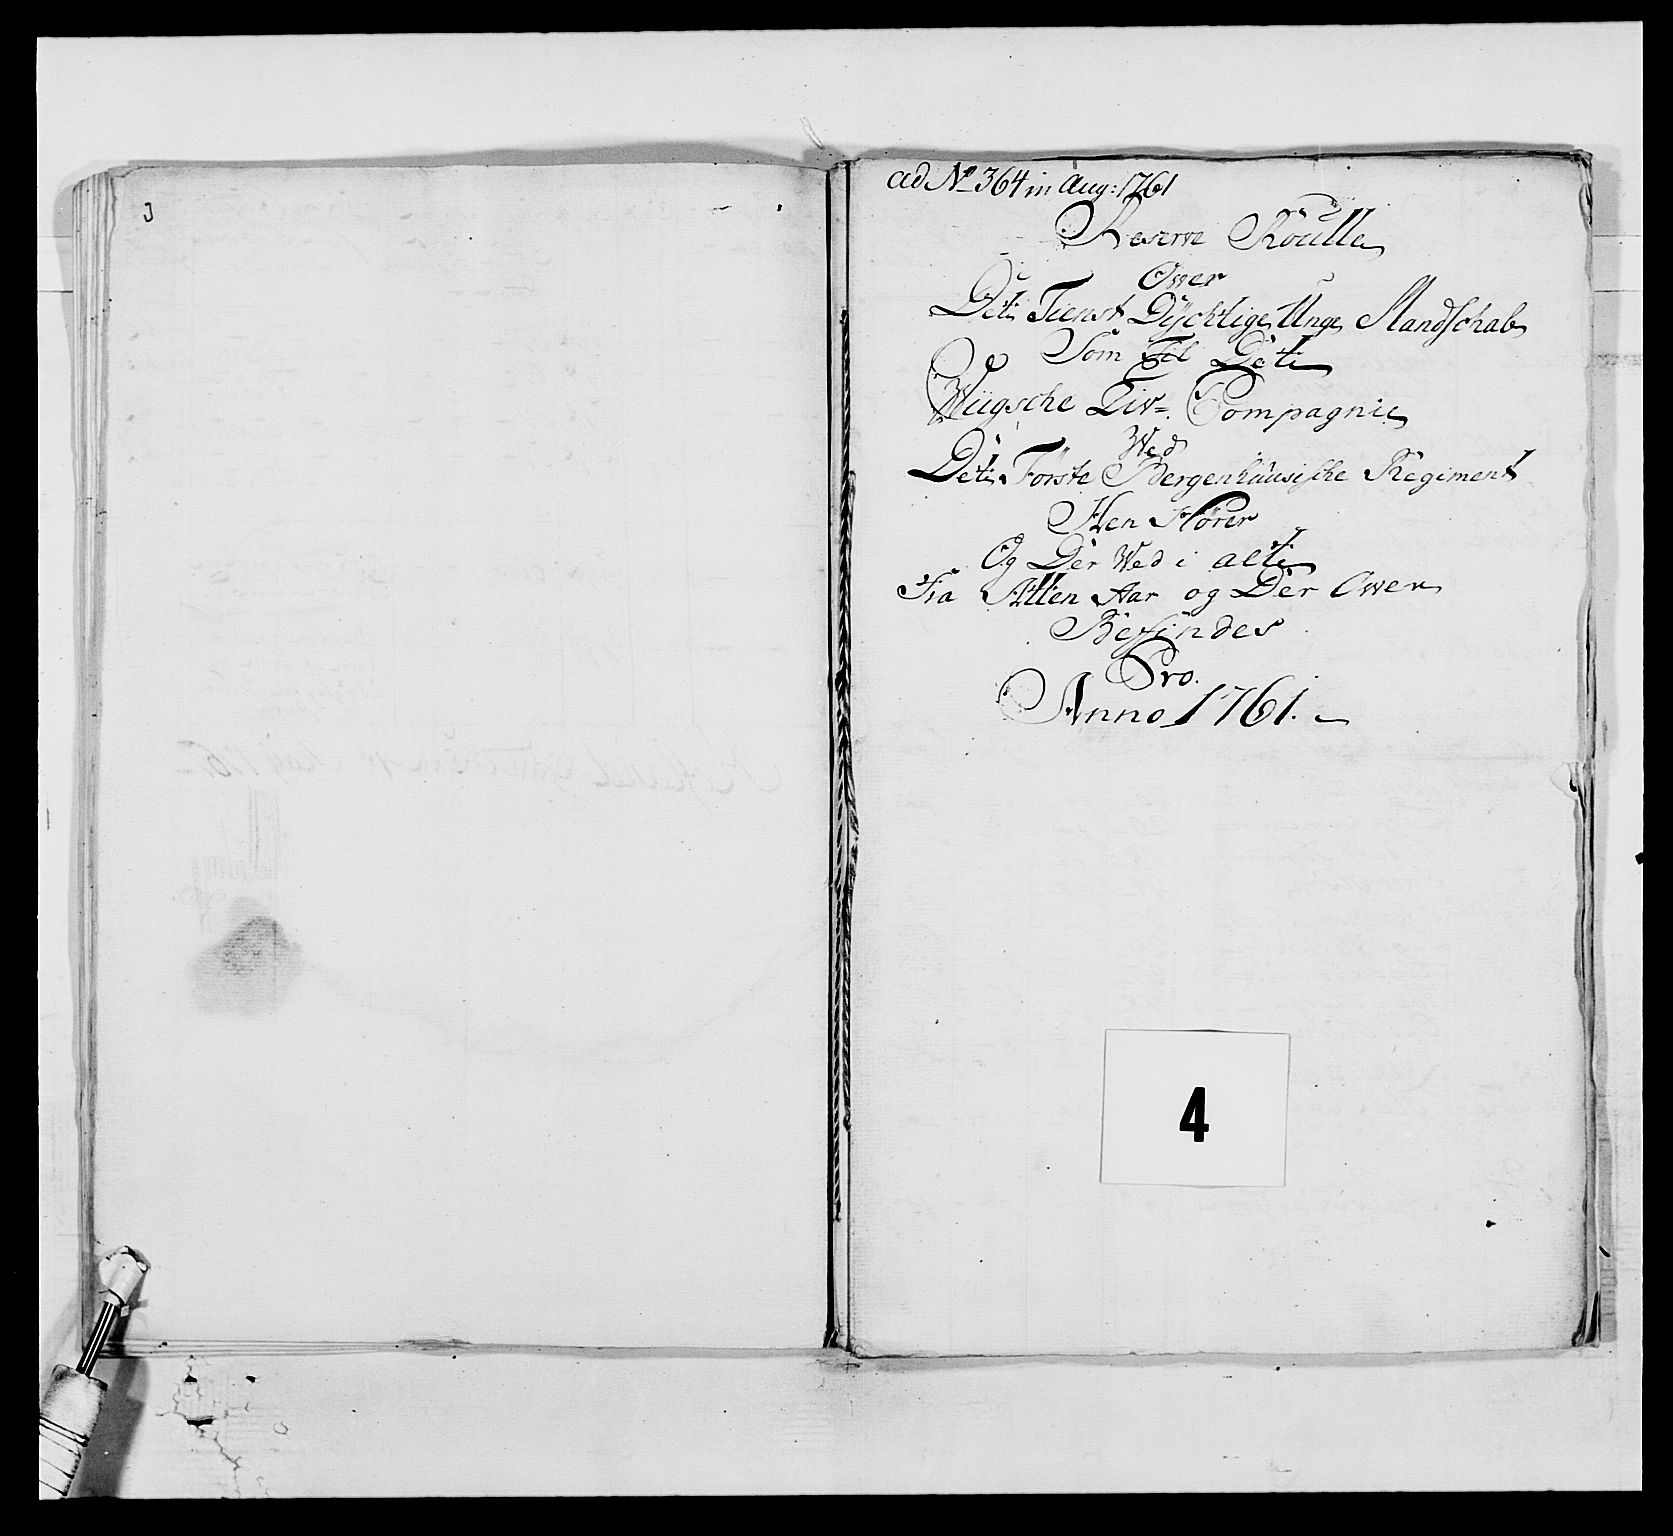 ad No 364 in Aug: 1761
Reserve Roulle
Over
Det Tienst Dÿchtige Unge Mandschab
Som Til Det
Wiigsche Liv=. Compagnie
Wed
Det Første Bergenhuusische Regiment
Hen Hører
Og Der Wed i alt
Fra Atten Aar og Der Over
Befindes
Pro.
Anno 1761.
4